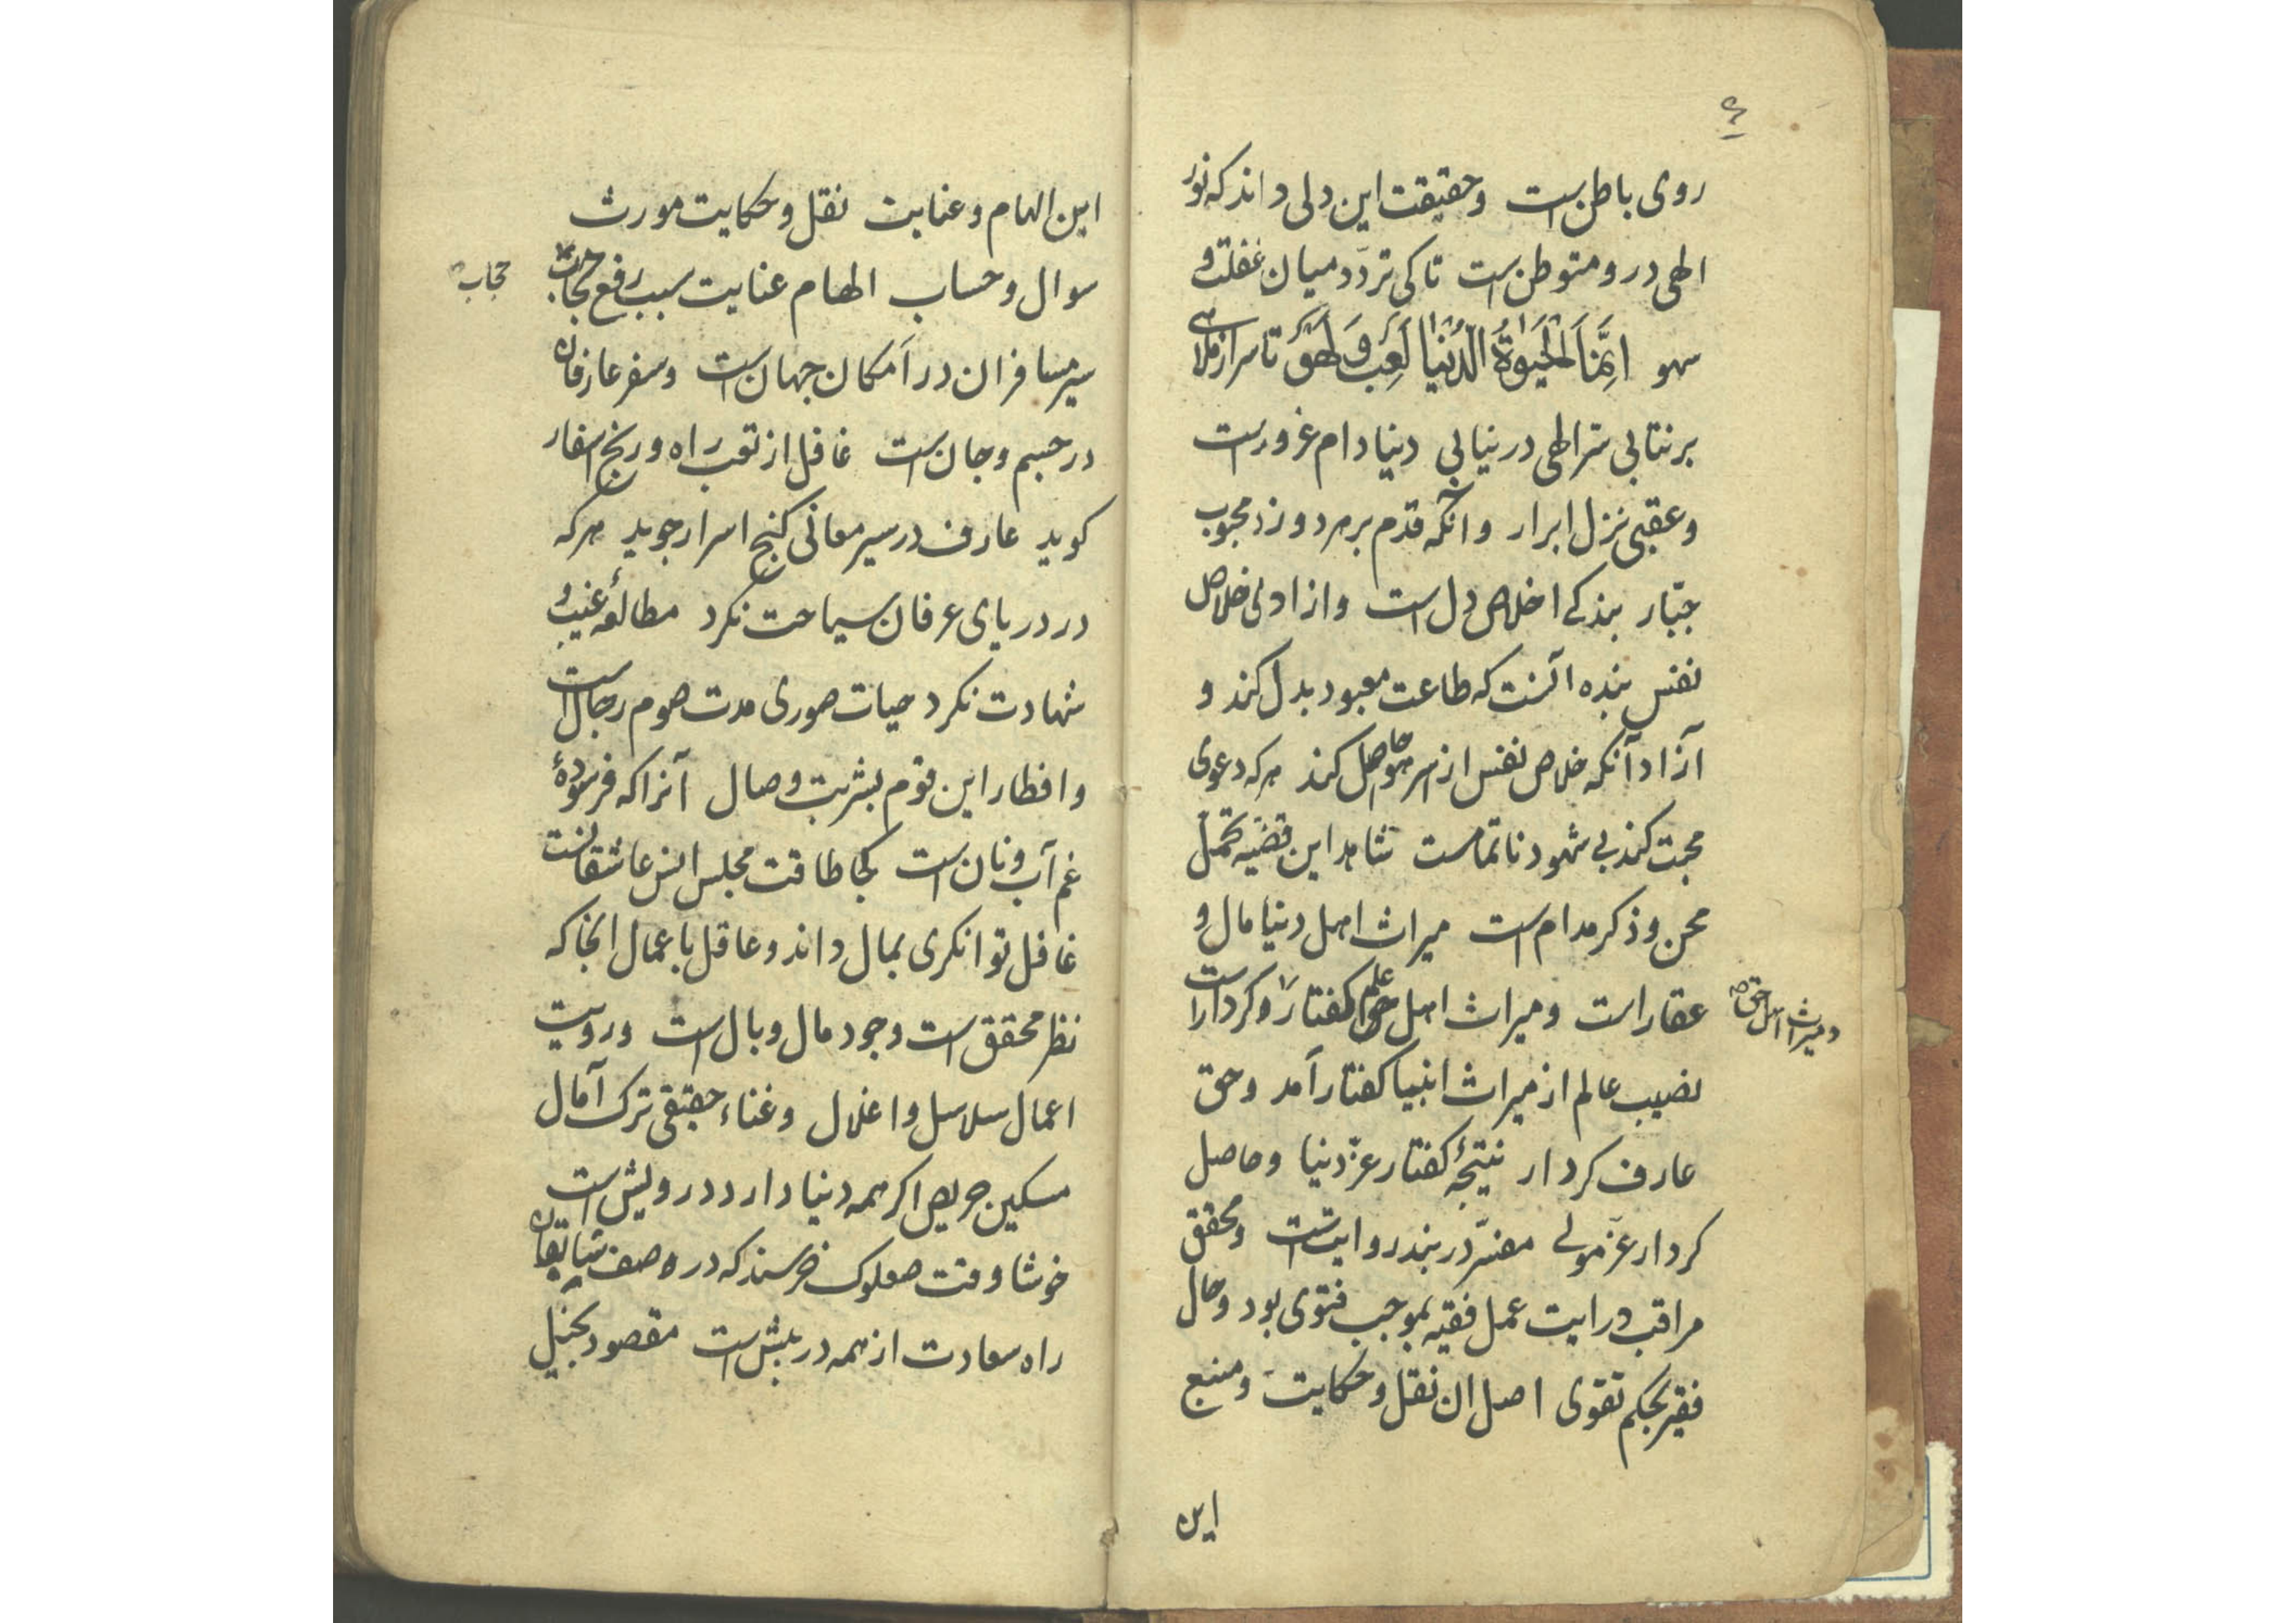 ۴
روی باطن است وحقیقت این دلی داند که نور
الهی درو متوطن است تا کی تردّد میان غفلت و
سهو اِنَّمَا الْحَیٰوةُ الدُّنْیَا لَعِبٌ وَلَهْوٌ تا سر از ملاهی
برنتابی سّر الهی درنیابی دنیا دام غرورست
وعقبی نزل ابرار وانکه قدم برهر دو زد محبوب
جبّار بندکی اخلاص دل است وازادی خلاص
نفس بنده آنست که طاعت معبود بدل کند و
آزاد آنکه خلاص نفس از سر هوا حاصل کند هرکه دعوی
محبت کند بی شهود ناتمامست شاهد این قضیه تحمل
محن وذکر مدام است میراث اهل دنیا مال و
عقار است ومیراث اهل علم کفتار وکردار است
ومیراث اهل حق صح
نصیب عالم از میراث انبیا کفتار آمد وحق
عارف کردار نتیجهٔ کفتار عزّ دنیا وحاصل
کردار عزّ مولی مفسّر دربند روایتست ومحقق
مراقب درایت عمل فقیه بموجب فتوی بود وحال
فقیر بحکم تقوی اصل ان نقل وحکایت ومنبع
این
این الهام وعنایت نقل وحکایت مورث
سوال وحساب الهام عنایت سبب رفع حجاب
حجاب
سیر مسافران در آمکان جهان است وسفر عارفان
در جسم وجان است غافل از تعب راه ورنج اسفار
کوید عارف در سیر معانی کنج اسرار جوید هرکه
در دریای عرفان سیاحت نکرد مطالعهٔ غیب و
شهادت نکرد حیات صوری مدت صوم رجال است
وافطار این قوم بشربت وصال آنرا که فرسودهٔ
غم آب ونان است کجا طاقت مجلس انس عاشقانست
غافل توانکری بمال داند وعاقل باعمال انجا که
نظر محقق است وجود مال وبال است ورویت
اعمال سلاسل واغلال وغناء حقیقی ترک آمال
مسکین حریص اکر همه دنیا دارد درویش است
خوشا وقت صعلوک خرسند که در وصف شایقان
راه سعادت از همه در پیش است مقصود بخیل